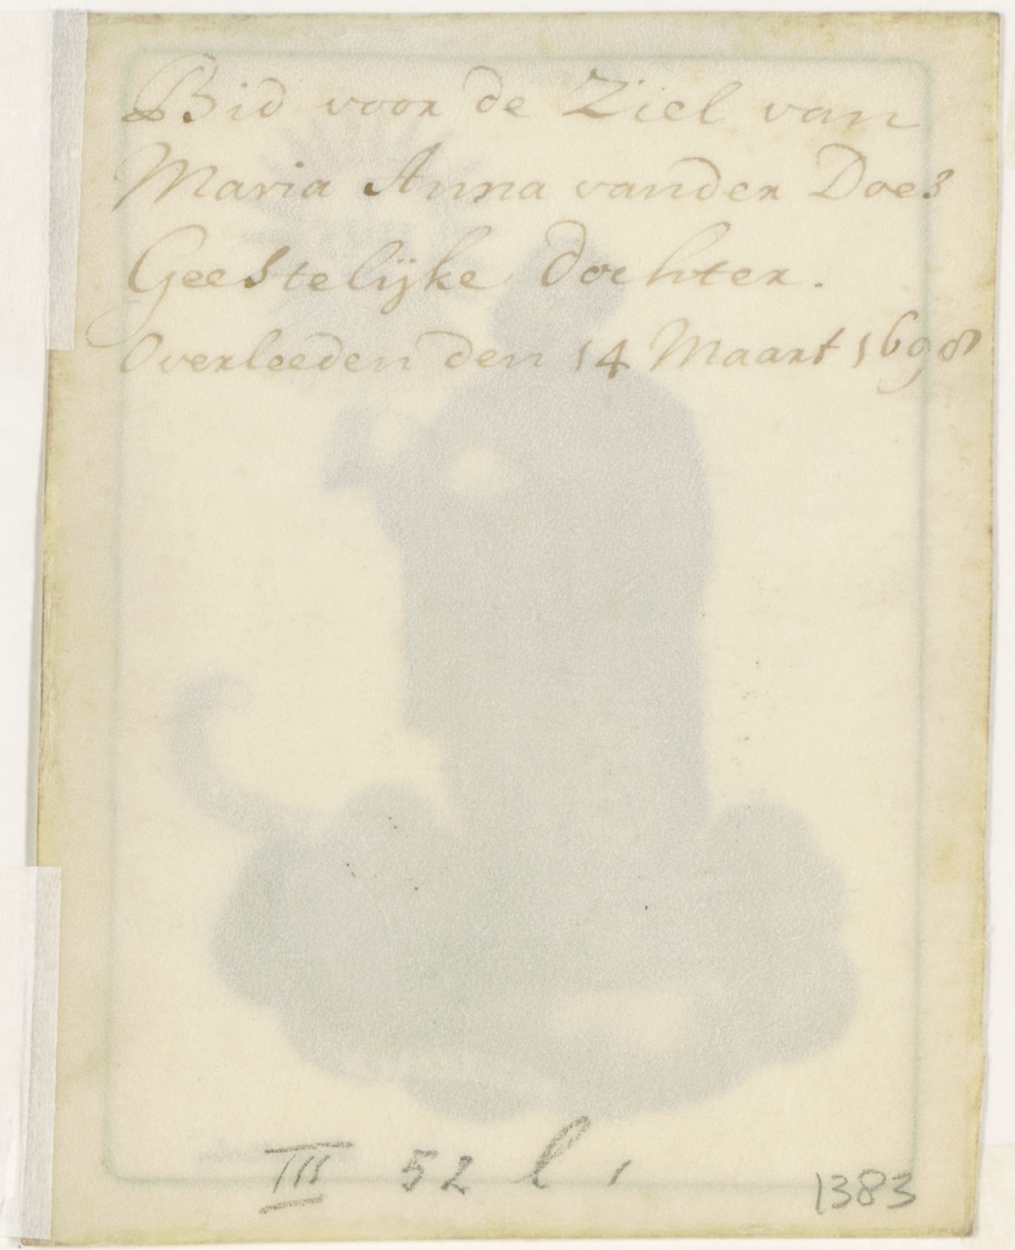 Bid voor de Ziel van
Maria Anna vander Does
Geestelijke dochter.
Overleeden den 14 Maart 1698
III 52 l 1
1383